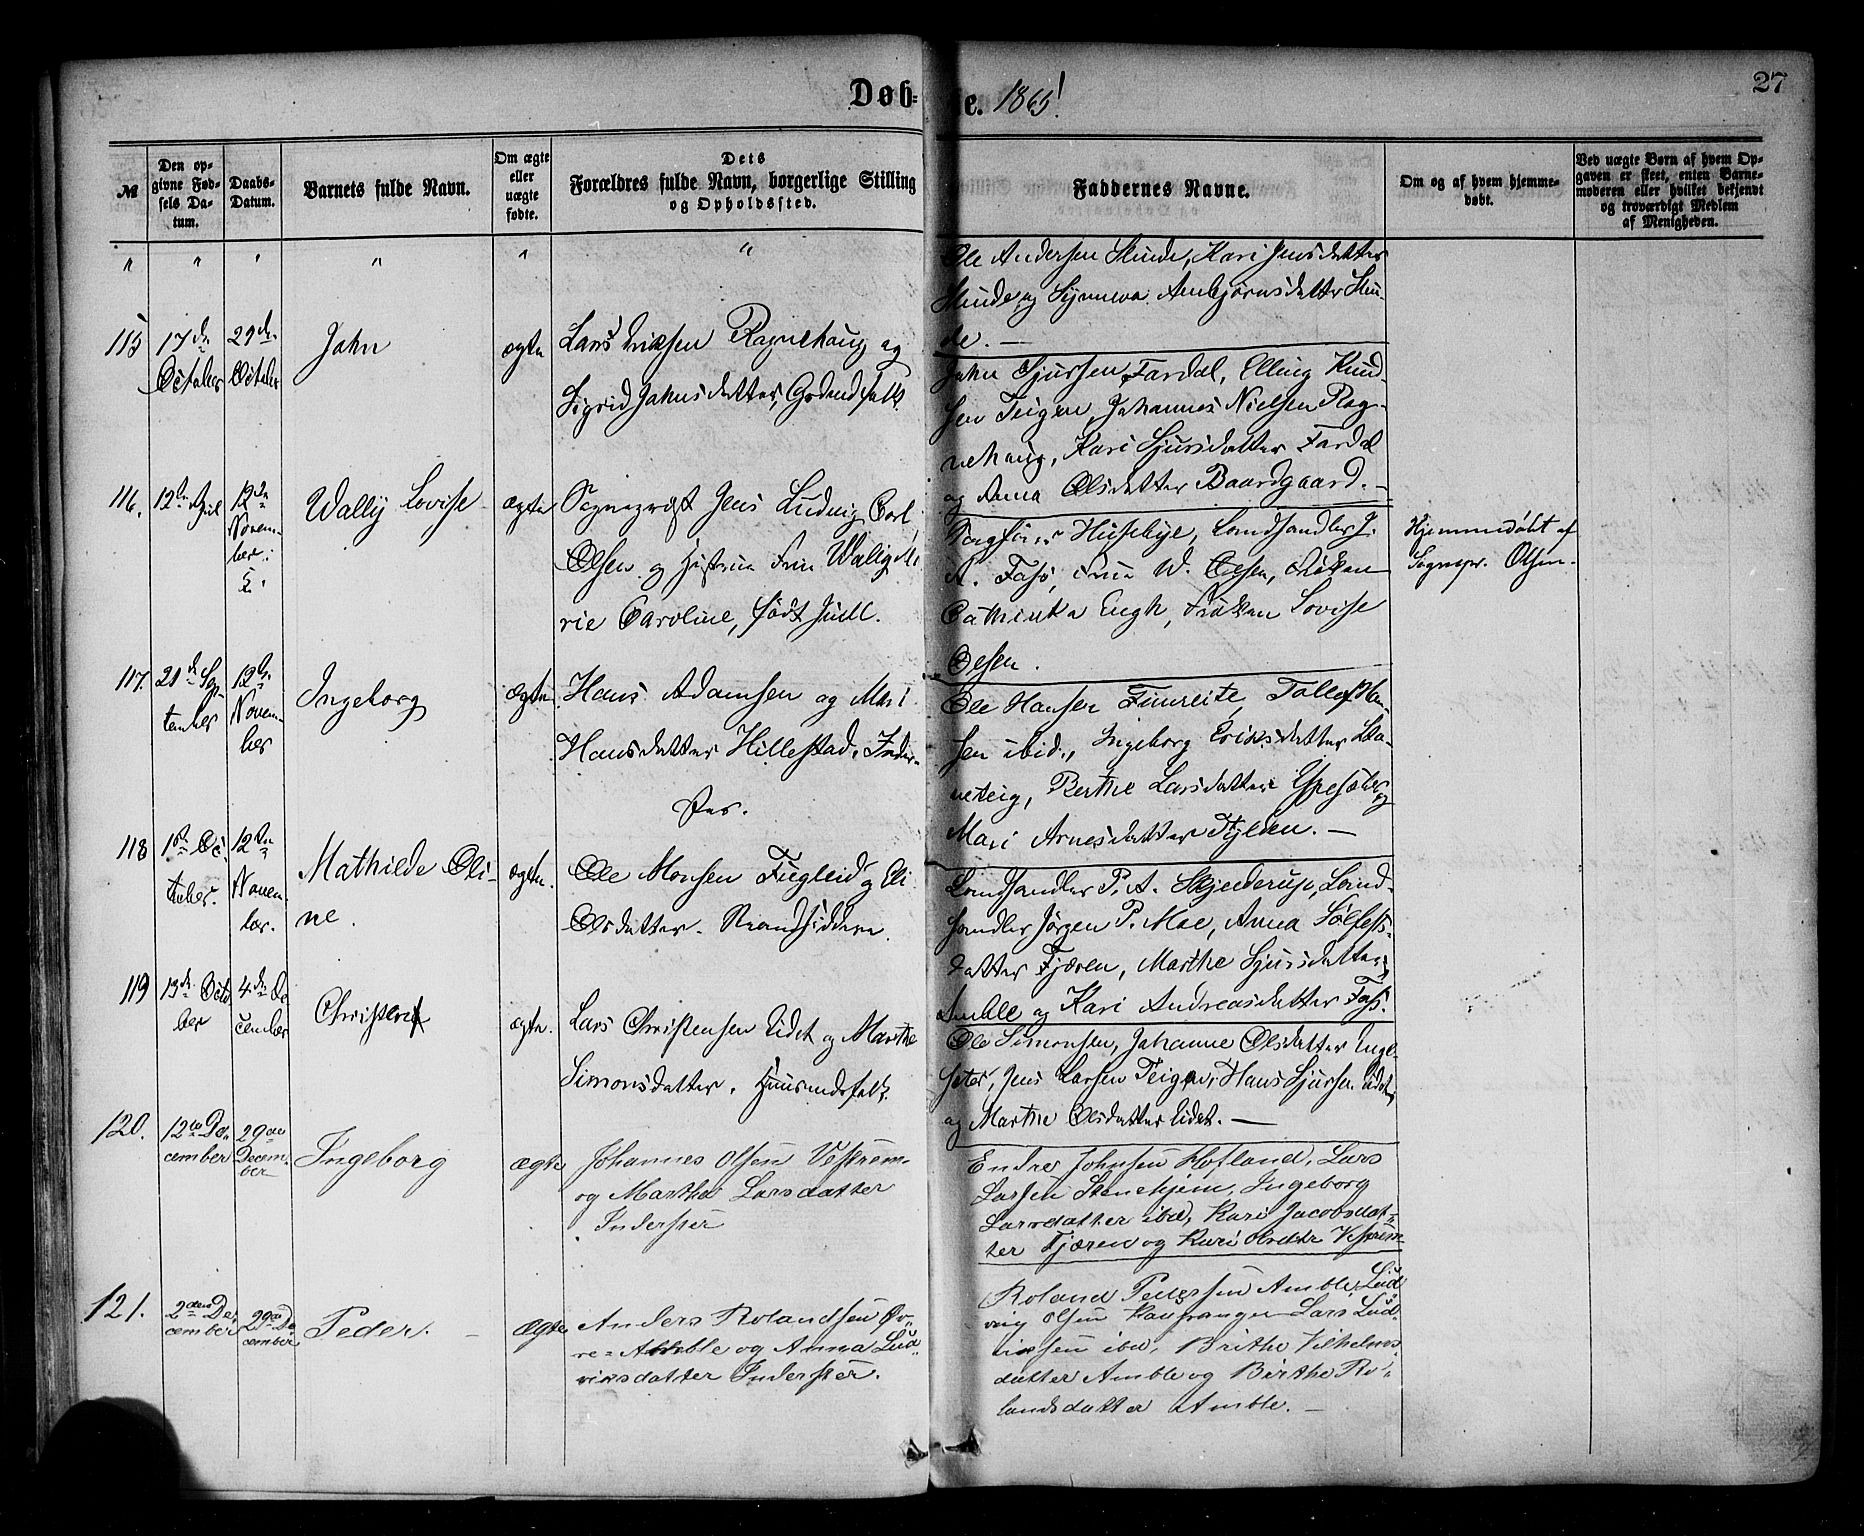 Døb-
te. 1865!
27
№
Den op-
givne Fød-
sels Da-
tum.
Daabs-
Datum.
Barnets fulde Navn.
Om ægte
eller
uægte
fødte.
Dets
Forældres fulde Navn, borgerlige Stilling
og Opholdssted.
Faddernes Navne.
Om og af hvem hjemme-
døbt.
Ved uægte Børn af hvem Op-
gaven er skeet, enten Barne-
moderen eller hvilket bekjendt
og troværdigt Medlem
af Menigheden.
" " " " " "
Ole Andersen Skinde, Kari Jensdatter
Skinde og Synneva Arnbjørnsdatter Skin-
de. —
115
17de
October
29de
October
John
ægte
Lars Eriksen Ragnehaug og
Sigrid Johnsdatter, Gdmdsfolk.
John Sjursen Fardal, Elling Knud-
sen Teigen, Johannes Nielsen Rag-
nehaug, Kari Sjursdatter Fardal
og Anna Olsdatter Baardgaard. —
116.
12te April
12te
Novem-
ber.
Wally Lovise
ægte
Sognepræst Jens Ludvig Carl
Olsen og Hustrue Fru Wally Ma-
rie Caroline, født Juell.
Sagfører Husebye, Landhandler J.
A. Fasø, Frue W. Olsen, Frøken
Cathinka Engh, Frøken Lovise
Olsen.
Hjemmedøbt af
Sognepr. Olsen.
117.
21de Sep-
tember
12te
Novem-
ber
Ingeborg
ægte
Hans Adamsen og Mari
Hansdatter Hillestad, Inder-
ster.
Ole Hansen Fimreite, Tollef Han-
sen ibid., Ingeborg Eriksdatter Sta-
neteig, Berthe Larsdatter Ypesæter og
Mari Arnesdatter Fylken. —
118
1ste Oc-
tober.
12te
Novem-
ber.
Mathilde Oli-
ne.
ægte.
Ole Monsen Fugleid og Eli
Olsdatter. Strandsiddere.
Landhandler P. A. Skjenderup, Land-
handler Jørgen P. Moe, Anna Sølfest-
datter Fjæren, Marthe Sjursdatter
Amble og Kari Andreasdatter Foss.
119
13de Octo-
ber
4de De-
cember
Christen
ægte.
Lars Christensen Eidet og Marthe
Simonsdatter. Huusmdsfolk.
Ole Simonsen, Johanne Olsdatter Engle-
seter, Jens Larsen Teigen, Hans Sjursen Eidet
og Marthe Olsdatter Eidet. —
120.
12te De-
cember
29de
Decem-
ber
Ingeborg
ægte
Johannes Olsen Vestrem
og Martha Larsdatter
Inderster
Endre Johnsen Hofland, Lars
Larsen Stenehjem, Ingeborg
Larsdatter ibd, Kari Jacobsdat-
ter Fjæren og Kari Olsdtr Vestrem
121.
2den De-
cember
29de De-
cember
Peder. —
ægte
Anders Rolandsen Øv-
re-Amble og Anna Lud-
viksdatter Inderster.
Roland Pedersen Amble, Lud-
vig Olsen Kaupanger Lars Lud-
viksen ibd, Brithe Vilhelms-
datter Amble og Birthe Ro-
landsdatter Amble. —